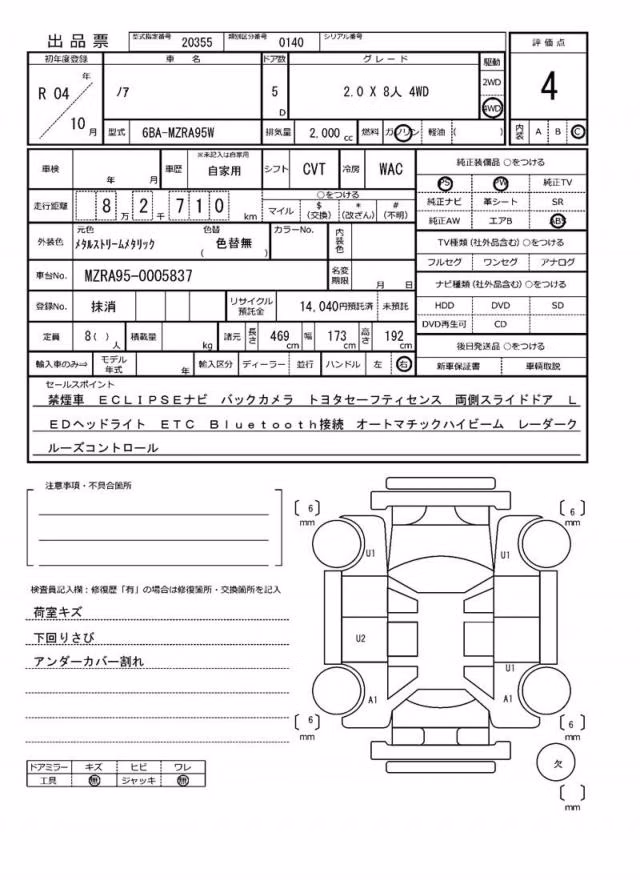 出品票 型式指定番号 20355 類別区分番号 0140 シリアル番号
評価点
4
内装 A B C
初年度登録 車名 ドア数 グレード 駆動
R 04 年 10 月
ﾉｱ
5 D
2.0 X 8人 4WD
2WD
4WD
型式 6BA-MZRA95W 排気量 2,000 cc 燃料 ガソリン 軽油 ( )
車検 年 月 車歴 ※未記入は自家用 自家用 シフト CVT 冷房 WAC
走行距離 8万 2千 7 1 0 km
○をつける
マイル $(交換) *(改ざん) #(不明)
外装色 元色 ﾒﾀﾙｽﾄﾘｰﾑﾒﾀﾘｯｸ 色替 ( 色替無 ) カラーNo. 内装色
車台No. MZRA95-0005837 名変期限 月 日
登録No. 抹消 リサイクル預託金 14,040円預託済 未預託
定員 8( )人 積載量 kg 諸元 長さ 469 cm 幅 173 cm 高さ 192 cm
輸入車のみ⇒ モデル年式 年 輸入区分 ディーラー 並行 ハンドル 左 右
純正装備品 ○をつける
PS PW 純正TV
純正ナビ 革シート SR
純正AW エアB ABS
TV種類 (社外品含む) ○をつける
フルセグ ワンセグ アナログ
ナビ種類 (社外品含む) ○をつける
HDD DVD SD
DVD再生可 CD
後日発送品 ○をつける
新車保証書 車輌取説
セールスポイント
禁煙車 ＥＣＬＩＰＳＥナビ バックカメラ トヨタセーフティセンス 両側スライドドア Ｌ
ＥＤヘッドライト ＥＴＣ Ｂｌｕｅｔｏｏｔｈ接続 オートマチックハイビーム レーダーク
ルーズコントロール
注意事項・不具合箇所
検査員記入欄：修復歴「有」の場合は修復箇所・交換箇所を記入
荷室キズ
下回りさび
アンダーカバー割れ
ドアミラー キズ ヒビ ワレ
工具 無 ジャッキ 無
〔 6 〕mm
〔 6 〕mm
U1
U1
U2
U1
A1
A1
〔 6 〕mm
〔 6 〕mm
欠
〔 〕mm